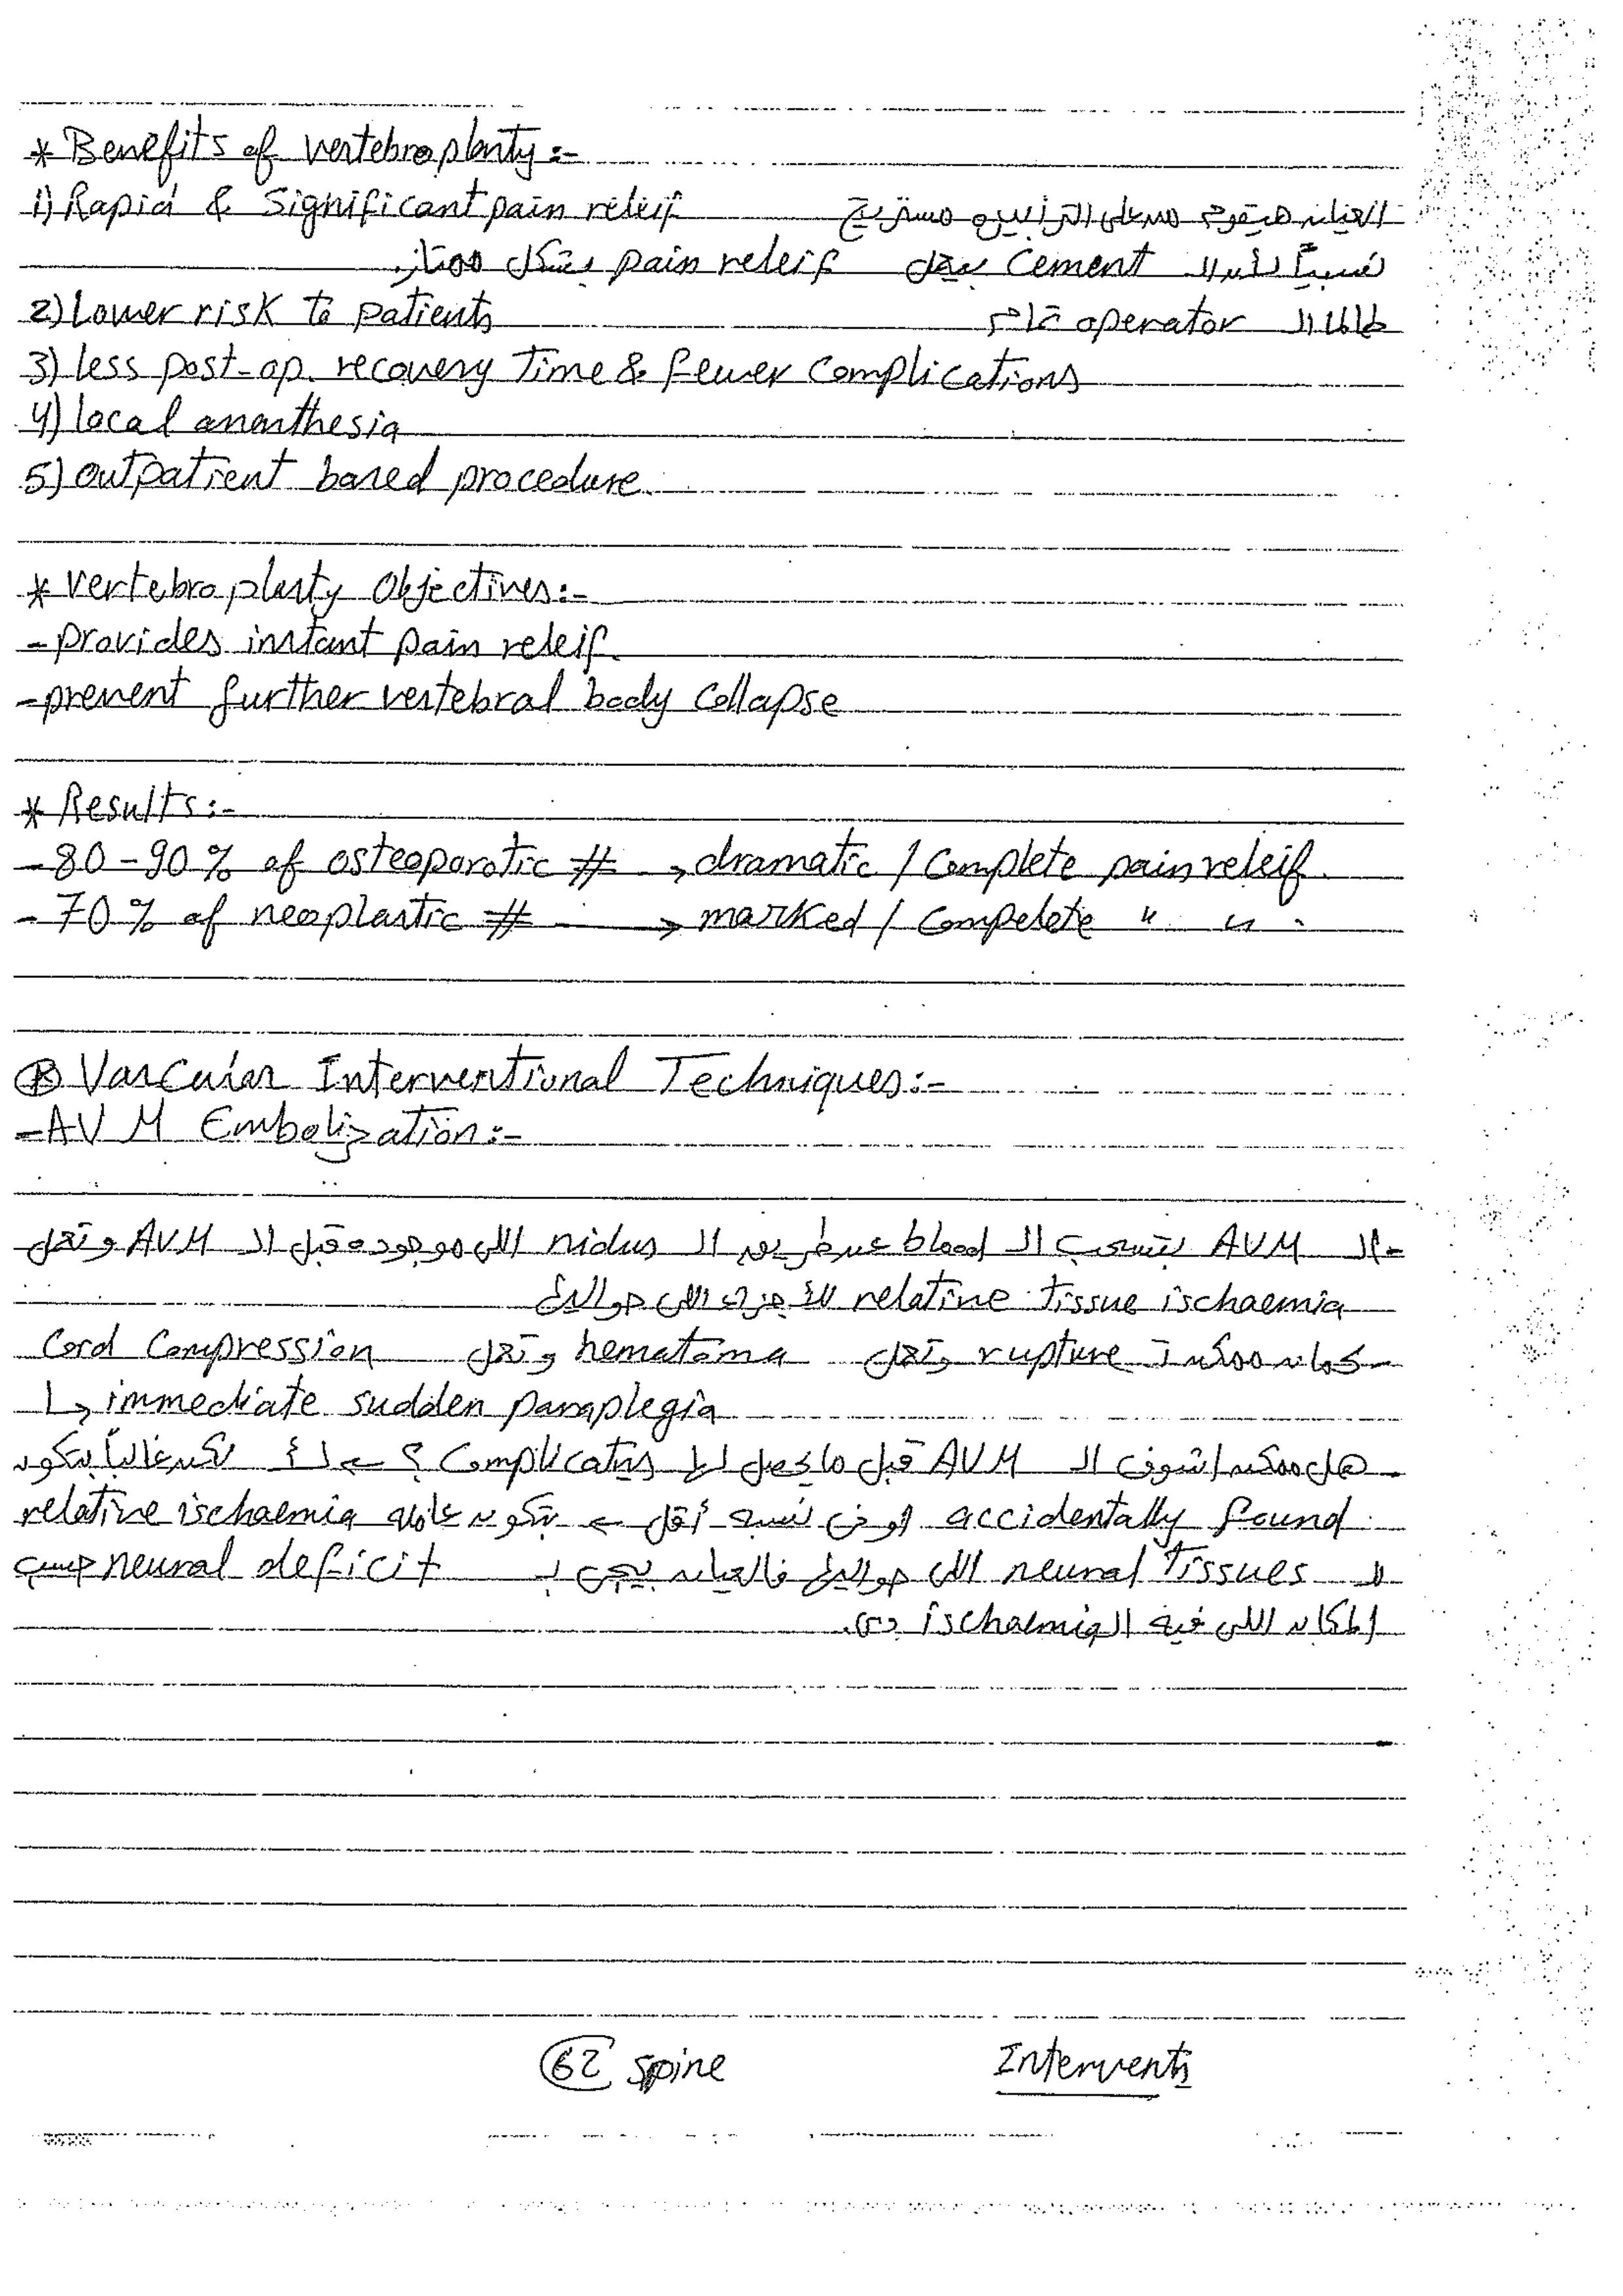 * Benefits of vertebroplasty:-
1) Rapid & Significant pain releif العيان هيقوم من على الترابيزه مستريح
نسبياً لأن الـ Cement بيعمل pain releif بشكل ممتاز.
2) Lower risk to patients طالما الـ operator فاهم
3) less post-op. recovery Time & fewer Complications
4) local anasthesia
5) outpatient based procedure.
* Vertebroplasty Objectives:-
- provides instant pain releif.
- prevent further vertebral body Collapse
* Results:-
- 80-90% of osteoporotic # → dramatic / Complete pain releif.
- 70% of neoplastic # → marked / Compelete " " .
Ⓑ Vascular Interventional Techniques:-
- AVM Embolization:-
- الـ AVM بتسحب الـ blood عن طريق الـ nidus اللى موجودة قبل الـ AVM وتعمل
relative tissue ischaemia للأجزاء اللى حواليها
- كمان ممكن rupture وتعمل hematoma وتعمل Cord Compression
↳ immediate sudden paraplegia
- هل ممكن اشوف الـ AVM قبل ما يحصل لها Complicatns ؟ ← لأ لكن غالباً بتكون
accidentally found او فى نسبه أقل ← بتكون عامله relative ischaemia
للـ neural Tissues اللى حواليها فالعيان بيجى بـ neural deficit حسب
المكان اللى فيه الـ ischaemia دى.
62 spine Interventn